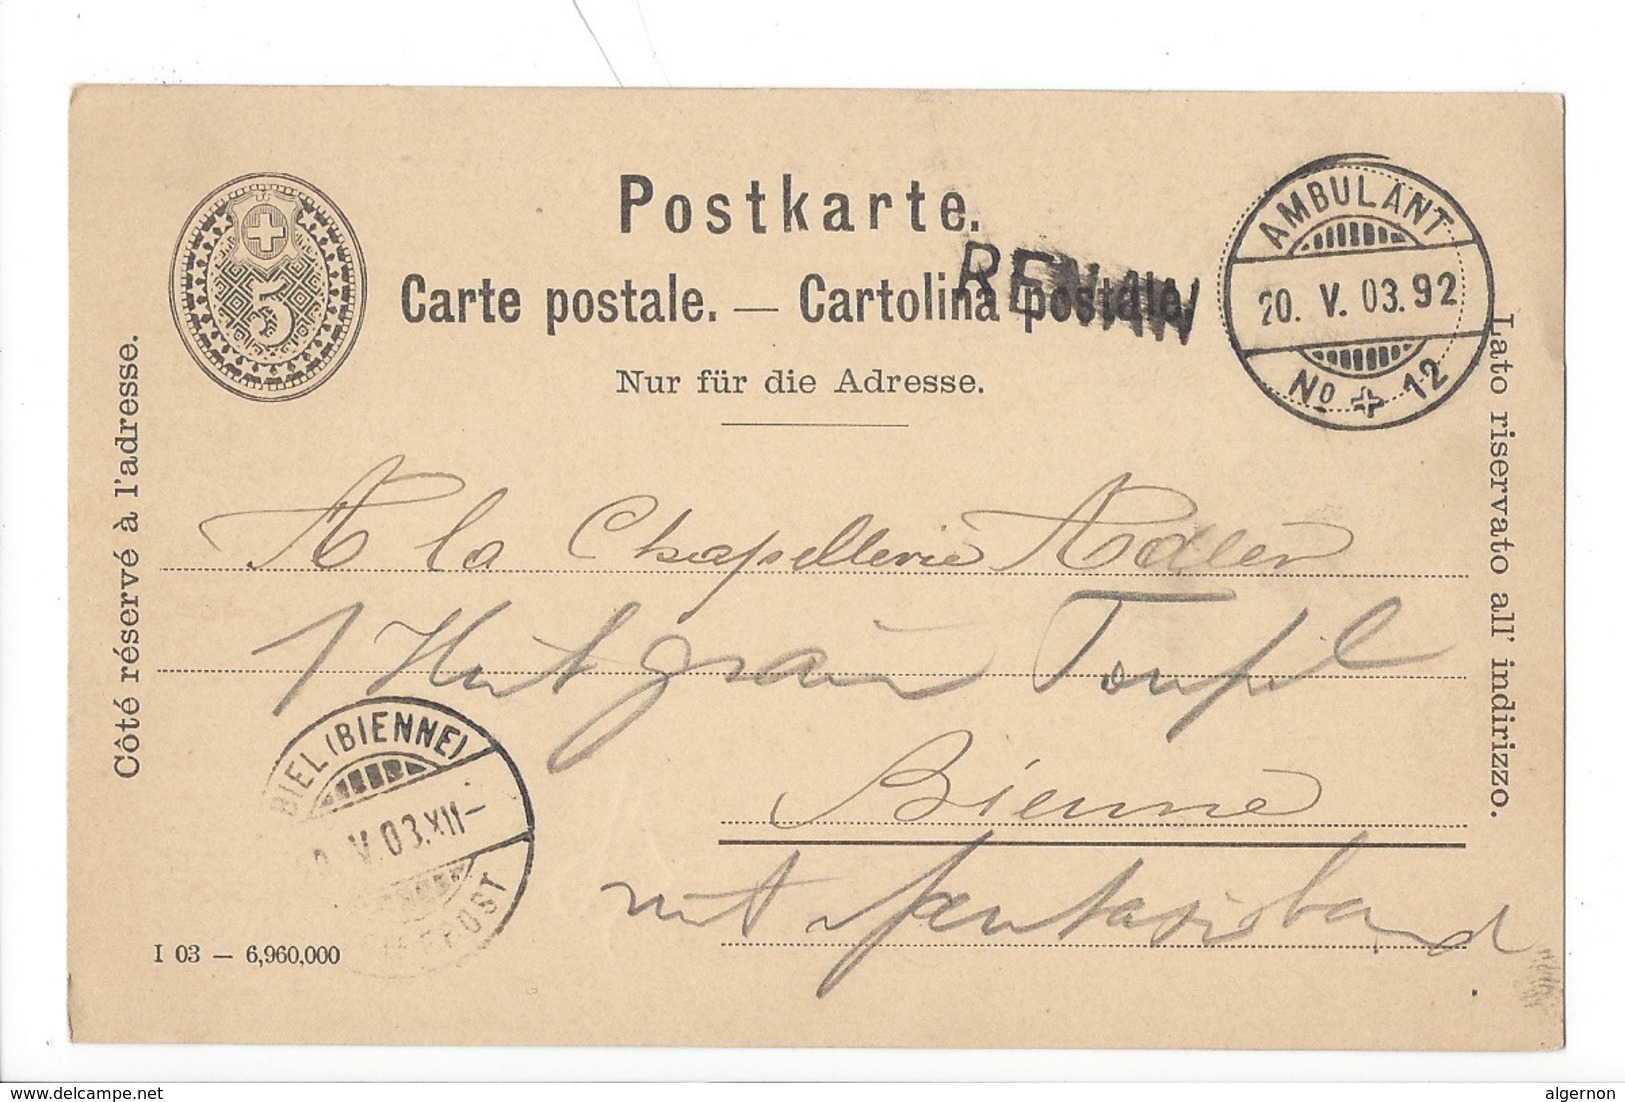 Postkarte.
Carte postale. — Cartolina postale.
RENAN
Nur für die Adresse.
AMBULANT
20. V. 03. 92
No 12
5
Côté réservé à l'adresse.
Lato riservato all' indirizzo.
A la Chapellerie Adler
1 Hut grau Toupel
Bienne
mit fantasieband
BIEL (BIENNE)
V. 03. XII-
I 03 — 6,960,000
www.delcampe.net
algernon